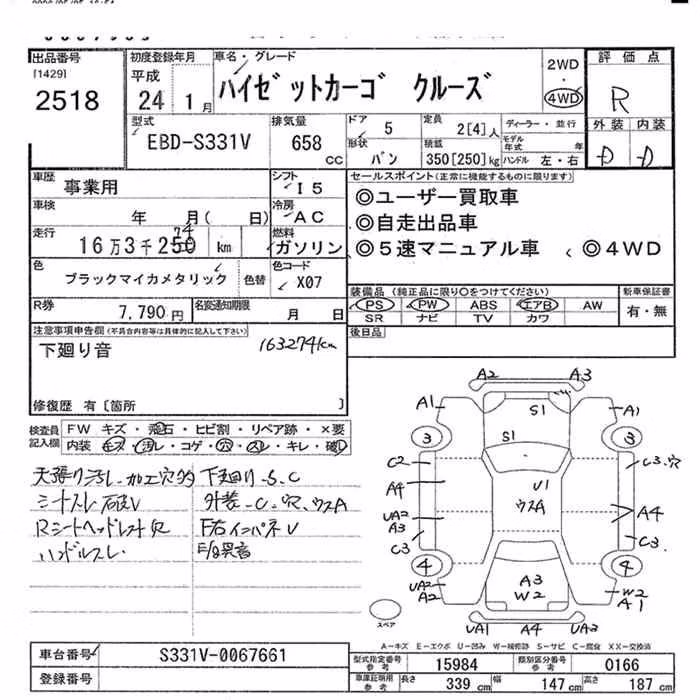 出品番号
[1429]
2518
初度登録年月
平成
24 1月
車名・グレード
ハイゼットカーゴ クルーズ
2WD
・
4WD
評価点
R
外装 内装
D D
型式
EBD-S331V
排気量
658
CC
ドア 5
形状 バン
定員 2[4]人
積載 350[250]kg
ディーラー・並行
モデル年式 年
ハンドル 左・右
車歴 事業用
シフト I5
車検 年 月( 日)
冷房 AC
走行 16万3千250 km
74
燃料 ガソリン
色 ブラックマイカメタリック 色替
色コード X07
R券 7,790円
名変通知期限 月 日
セールスポイント(正常に機能するものに限ります)
◎ユーザー買取車
◎自走出品車
◎5速マニュアル車 ◎4WD
装備品(純正品に限り○をつけてください)
PS PW ABS エアB AW
SR ナビ TV カワ
新車保証書
有・無
後日品
注意事項申告欄(不具合内容等は具体的に記入して下さい)
下廻り音
163274km
修復歴 有[箇所 ]
検査員記入欄
FW キズ・飛石・ヒビ割・リペア跡・×要
内装 キズ・汚レ・コゲ・穴・スレ・キレ・破レ
天張り汚レ.加工穴多 下廻り.S.C
シートスレ 破レ 外装-C.穴.ウスA
Rシートヘッドレスト欠 F右インパネU
ハンドルスレ. E/g異音
A2 A3
A1 S1 A1
3 S1 3
C2 C3.穴
A4 U1
ウスA
UA2 A4
A3
C3 C3
4 4
UA2 A3 W2
A2 W2 A1
UA1 A4 UA3
スペア
A-キズ E-エクボ U-凹み W-補修跡 S-サビ C-腐食 XX-交換済
車台番号 S331V-0067661
登録番号
型式指定番号 参考 15984
類別区分番号 参考 0166
車庫証明用 参考 長さ 339cm 幅 147cm 高さ 187cm